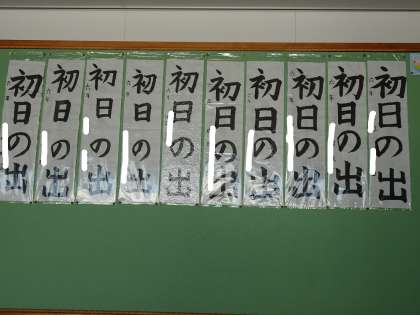 初日の出
初日の出
初日の出
初日の出
初日の出
初日の出
初日の出
六年
初日の出
六年
初日の出
六年
初日の出